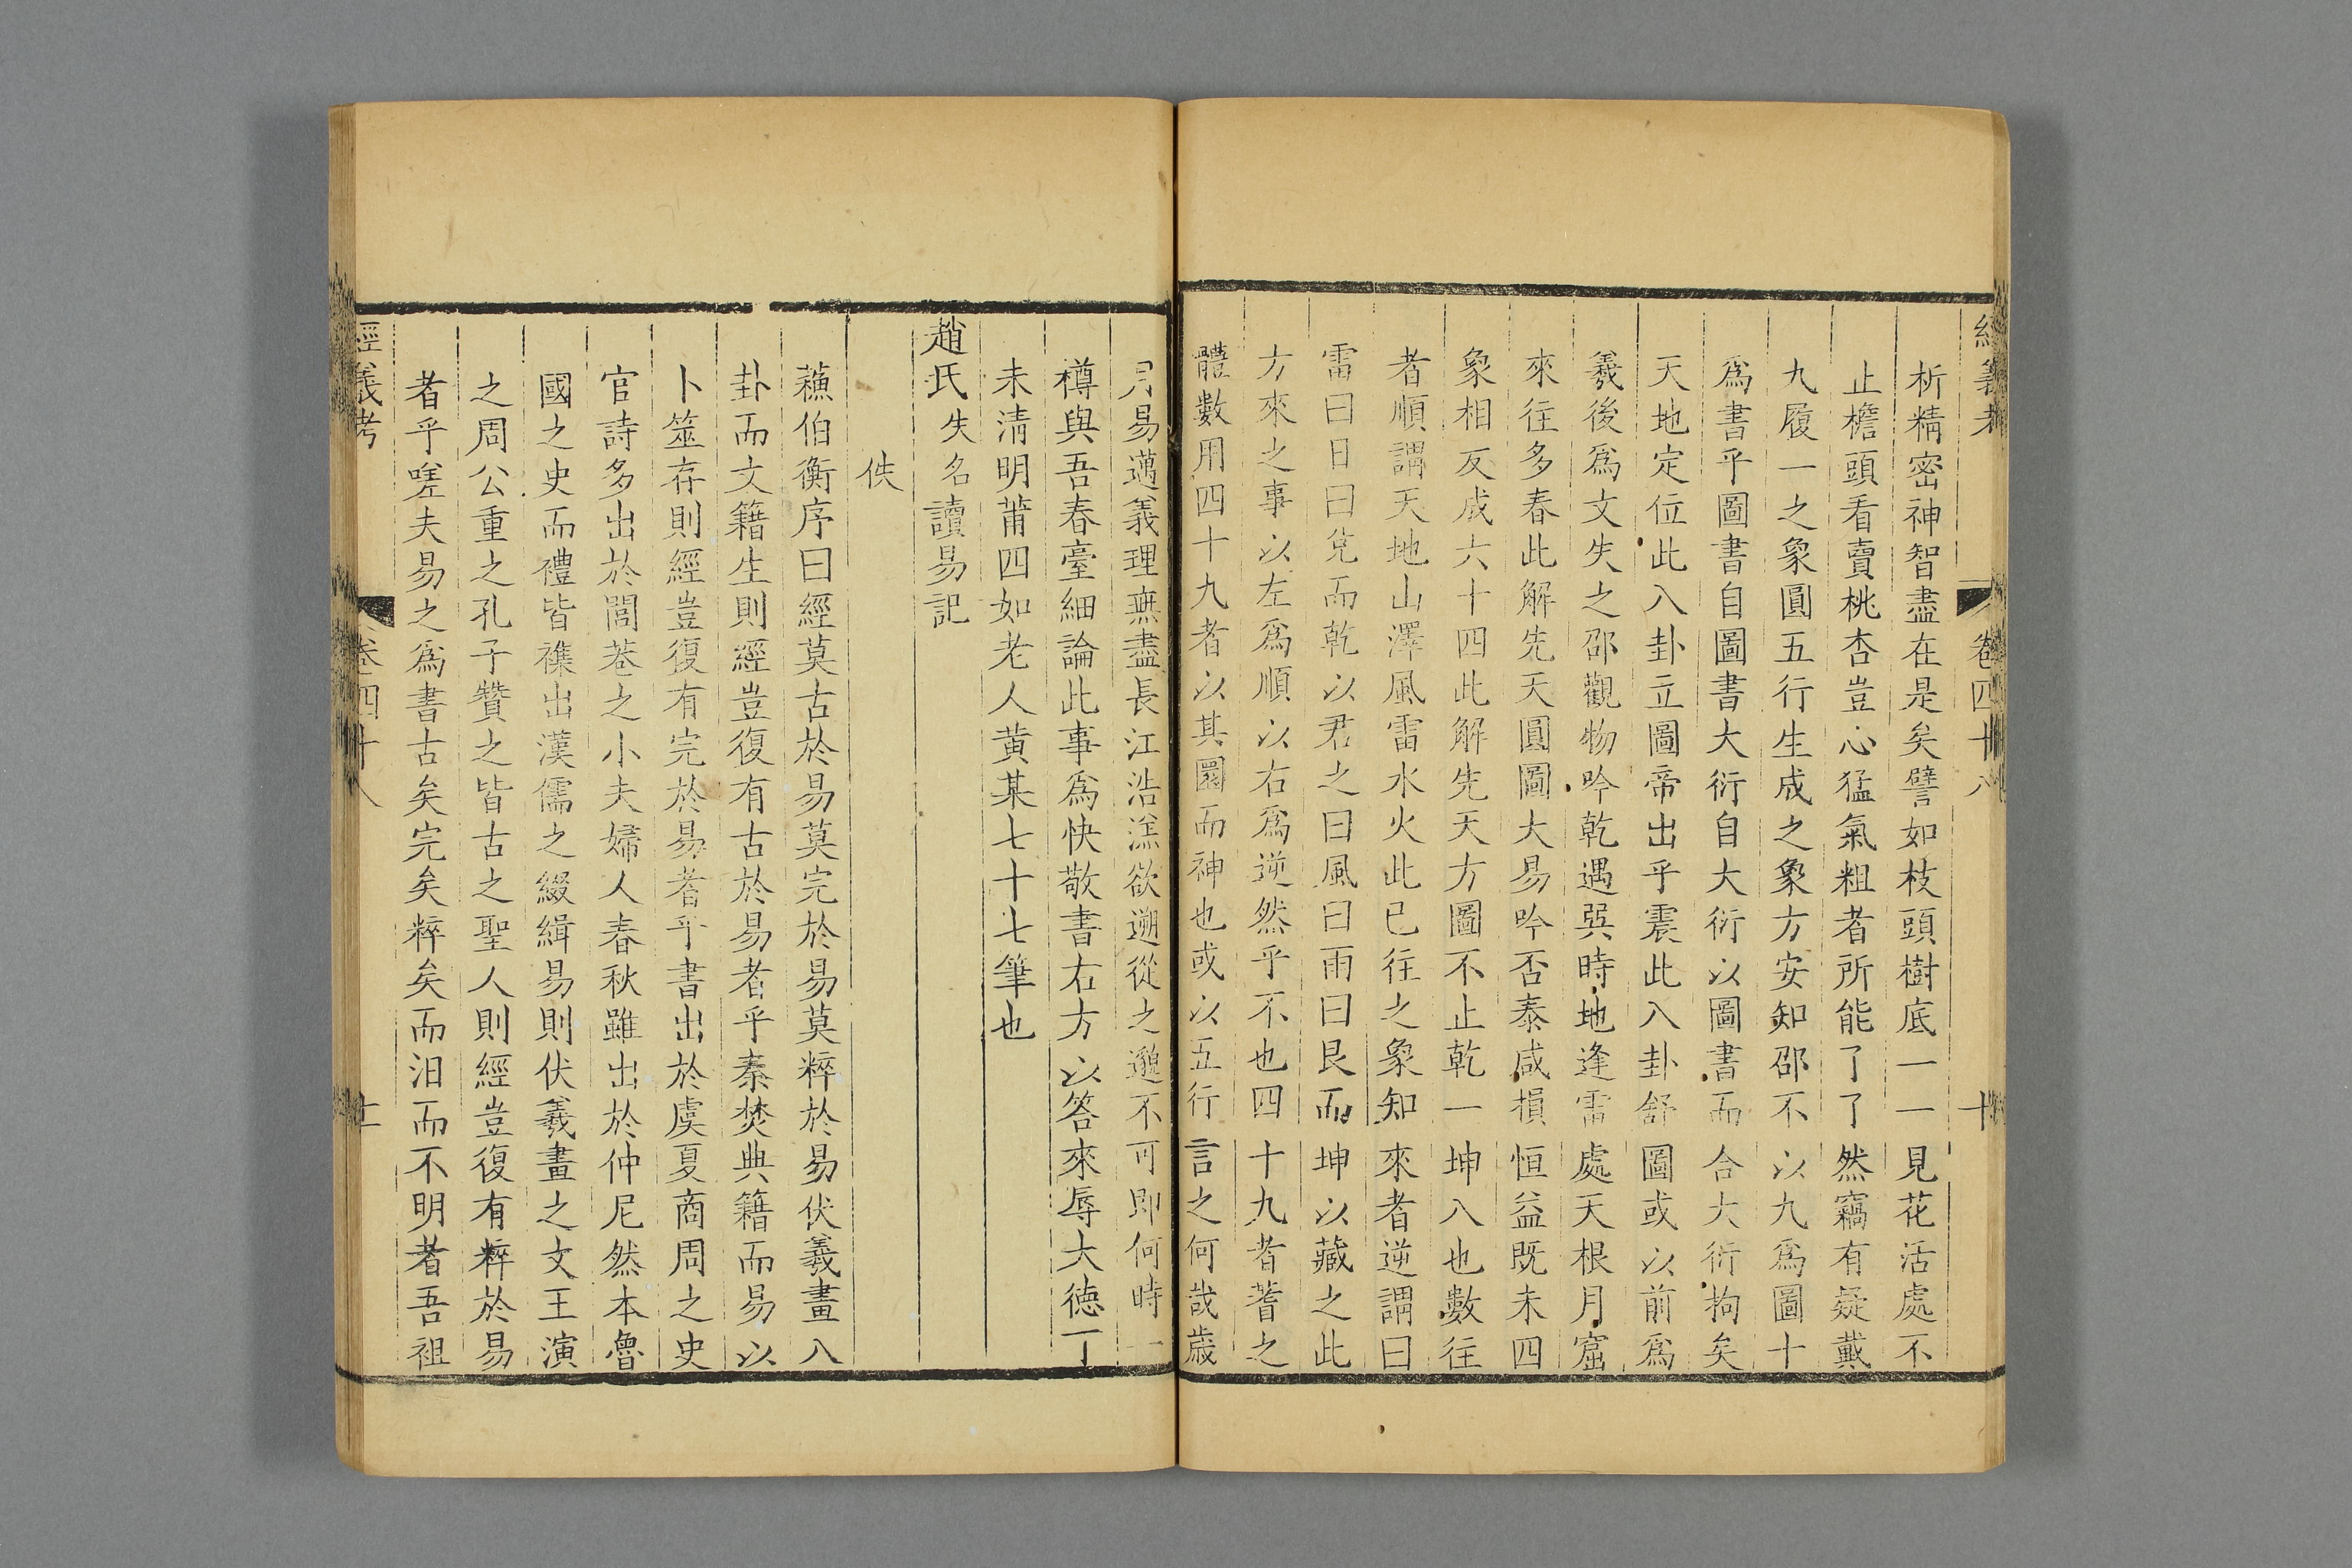 經義考 卷四十八 十
析精密神智盡在是矣譬如枝頭樹底一一見花活處不
止檐頭看賣桃杏豈心猛氣粗者所能了了然竊有疑戴
九履一之象圓五行生成之象方安知邵不以九爲圖十
爲書乎圖書自圖書大衍自大衍以圖書而合大衍拘矣
天地定位此八卦立圖帝出乎震此八卦舒圖或以前爲
羲後爲文失之邵觀物吟乾遇巽時地逢雷處天根月窟
來往多春此解先天圓圖大易吟否泰咸損恒益既未四
象相反成六十四此解先天方圖不止乾一坤八也數往
者順謂天地山澤風雷水火此已往之象知來者逆謂曰
雷曰日曰兌而乾以君之曰風曰雨曰艮而坤以藏之此
方來之事以左爲順以右爲逆然乎不也四十九者蓍之
體數用四十九者以其圜而神也或以五行言之何哉歲
月易邁義理無盡長江浩渺欲遡從之邈不可即何時一
樽與吾春臺細論此事爲快敬書右方以答來辱大德丁
未清明莆四如老人黄某七十七筆也
趙氏失名讀易記
佚
蘓伯衡序曰經莫古於易莫完於易莫粹於易伏羲畫八
卦而文籍生則經豈復有古於易者乎秦焚典籍而易以
卜筮存則經豈復有完於易者乎書出於虞夏商周之史
官詩多出於閭巷之小夫婦人春秋雖出於仲尼然本魯
國之史而禮皆襍出漢儒之綴緝易則伏羲畫之文王演
之周公重之孔子贊之皆古之聖人則經豈復有粹於易
者乎嗟夫易之爲書古矣完矣粹矣而汨而不明者吾祖
經義考 卷四十八 十一